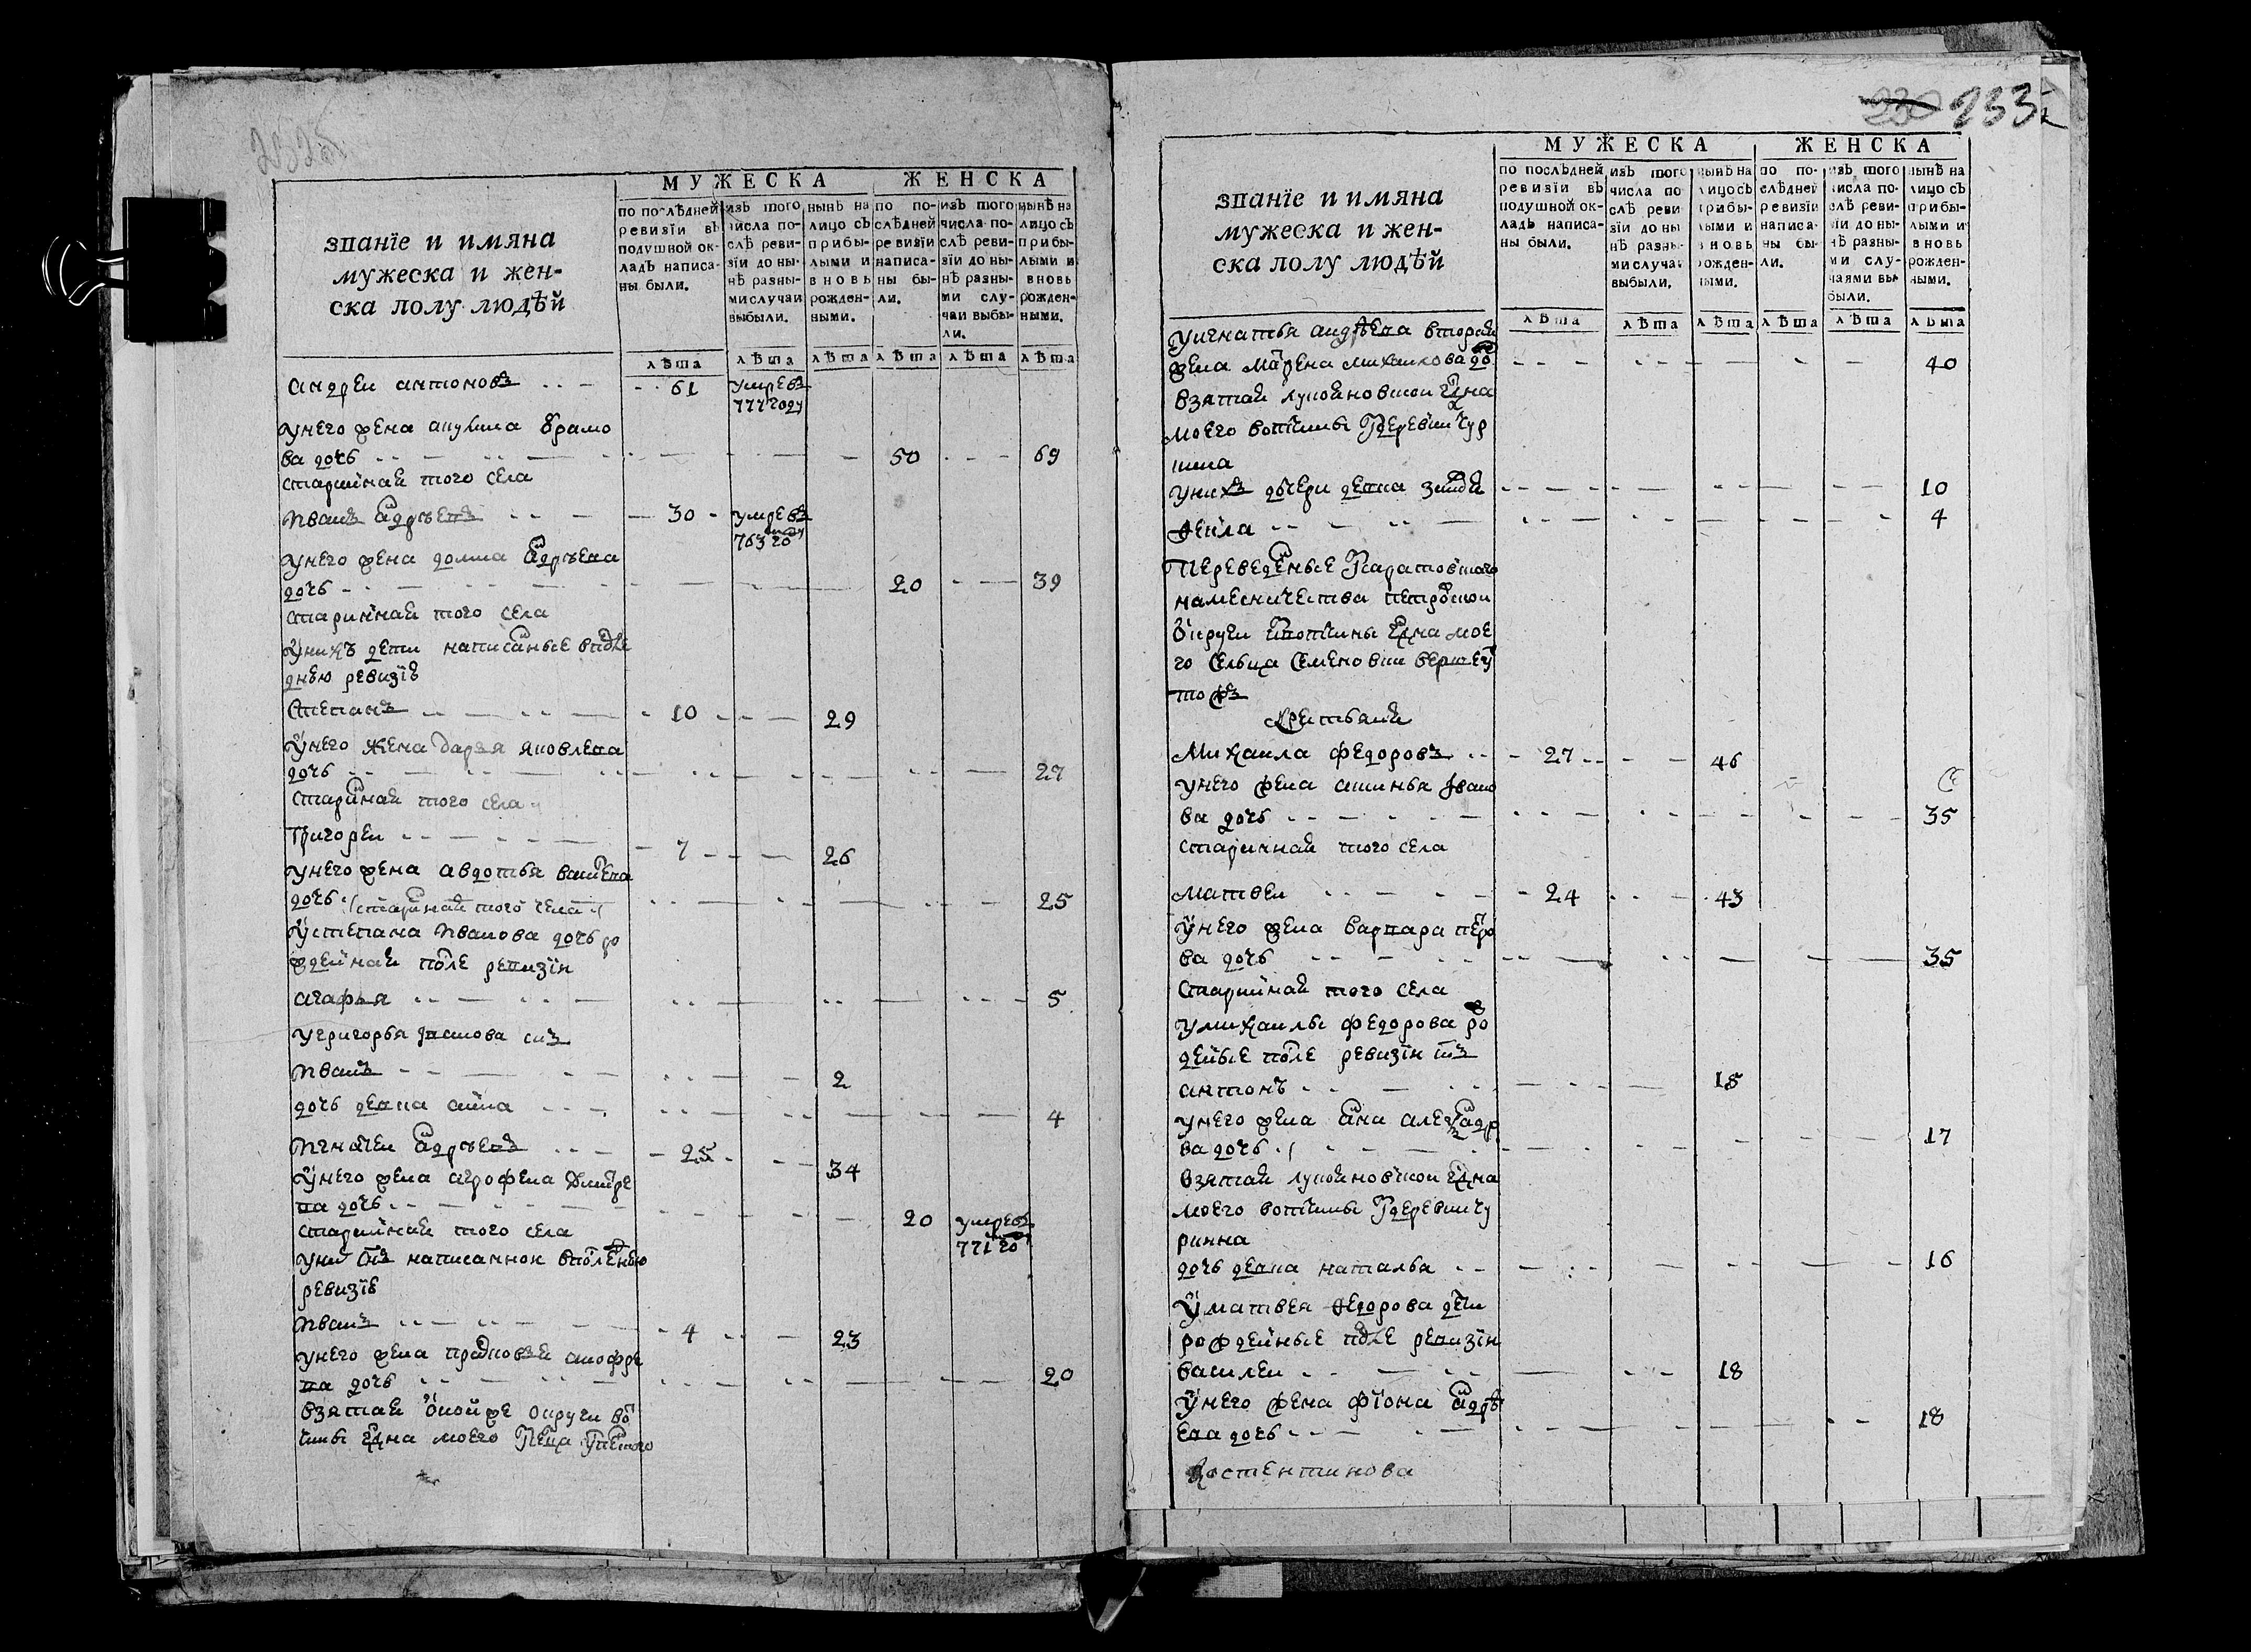 МУЖЕСКА ЖЕНСКА
званїе и имяна
мужеска и жен-
ска полу людѣй
по послѣдней
ревизїи въ
подушной ок-
ладъ написа-
ны были.
изъ того
числа по-
слѣ реви-
зїи до ны-
нѣ разны-
ми случаи
выбыли.
нынѣ на
лицо съ
прибы-
лыми и
вновь
рожден-
ными.
по по-
слѣдней
ревизїи
написа-
ны бы-
ли.
изъ того
числа по-
слѣ реви-
зїи до ны-
нѣ разны-
ми слу-
чаи выбы-
ли.
нынѣ на
лицо съ
прибы-
лыми и
вновь
рожден-
ными.
лѣта лѣта лѣта лѣта лѣта лѣта
андреи антоновъ 61 умревъ
777 году
унего жена акулина
ва дочь 50 69
старинная того села
иванъ 30 умревъ
763 го
унего жена домна
дочь 20 39
старинная того села
унихъ дети написаные
днею ревизїѣ
степанъ 10 29
унего жена дарья яковлева
дочь 27
старинная того села
григореи 7 26
унего жена авдотья
дочь старинная того села 25
устепана иванова дочь ро
жденная после ревизїи
агафья 5
угригорья иванова снъ
иванъ 2
дочь девка анна 4
игнатеи 25 34
унего жена агрофена
ва дочь 20 умревъ
771 го
старинная того села
уних снъ написаннои
ревизїѣ
иванъ 4 23
унего жена прасковья
ва дочь 20
взятая оноиже округи во
чины гдна моего
233
МУЖЕСКА ЖЕНСКА
званїе и имяна
мужеска и жен-
ска полу людѣй
по послѣдней
ревизїи въ
подушной ок-
ладъ написа-
ны были.
изъ того
числа по
слѣ реви
зїи до ны
нѣ разны-
ми случаи
выбыли.
нынѣ на
лицо съ
прибы-
лыми и
вновь
рожден-
ными.
по по-
слѣдней
ревизїи
написа-
ны бы-
ли.
изъ того
числа по-
слѣ реви-
зїи до ны-
нѣ разны-
ми слу-
чаями вы-
были.
нынѣ на
лицо съ
прибы-
лыми и
вновь
рожден-
ными.
лѣта лѣта лѣта лѣта лѣта лѣта
уигнатья андреева вторая
жена марена михаилова до 40
взятая лукояновскои гдна
моего вотчины деревни чур
кина
унихъ дочери девка 10
фекла 4
переведеные саратовского
наместничества петровскои
округи вотчины гдна мое
го сельца семеновки
тожъ
крестьяня
михаила федоровъ 27 46
унего жена аксинья ивано
ва дочь 35
старинная того села
матвеи 24 43
унего жена варвара петро
ва дочь 35
старинная того села
умихаилы федорова ро
деные после ревизїи снъ
антонъ 18
унего жена анна
ва дочь 17
взятая лукояновскои гдна
моего вотчины деревни чу
ркина
дочь девка наталья 16
уматвея федорова дети
рожденые после ревизїи
василеи 18
унего жена фїона андрѣ
ева дочь 18
костентинова